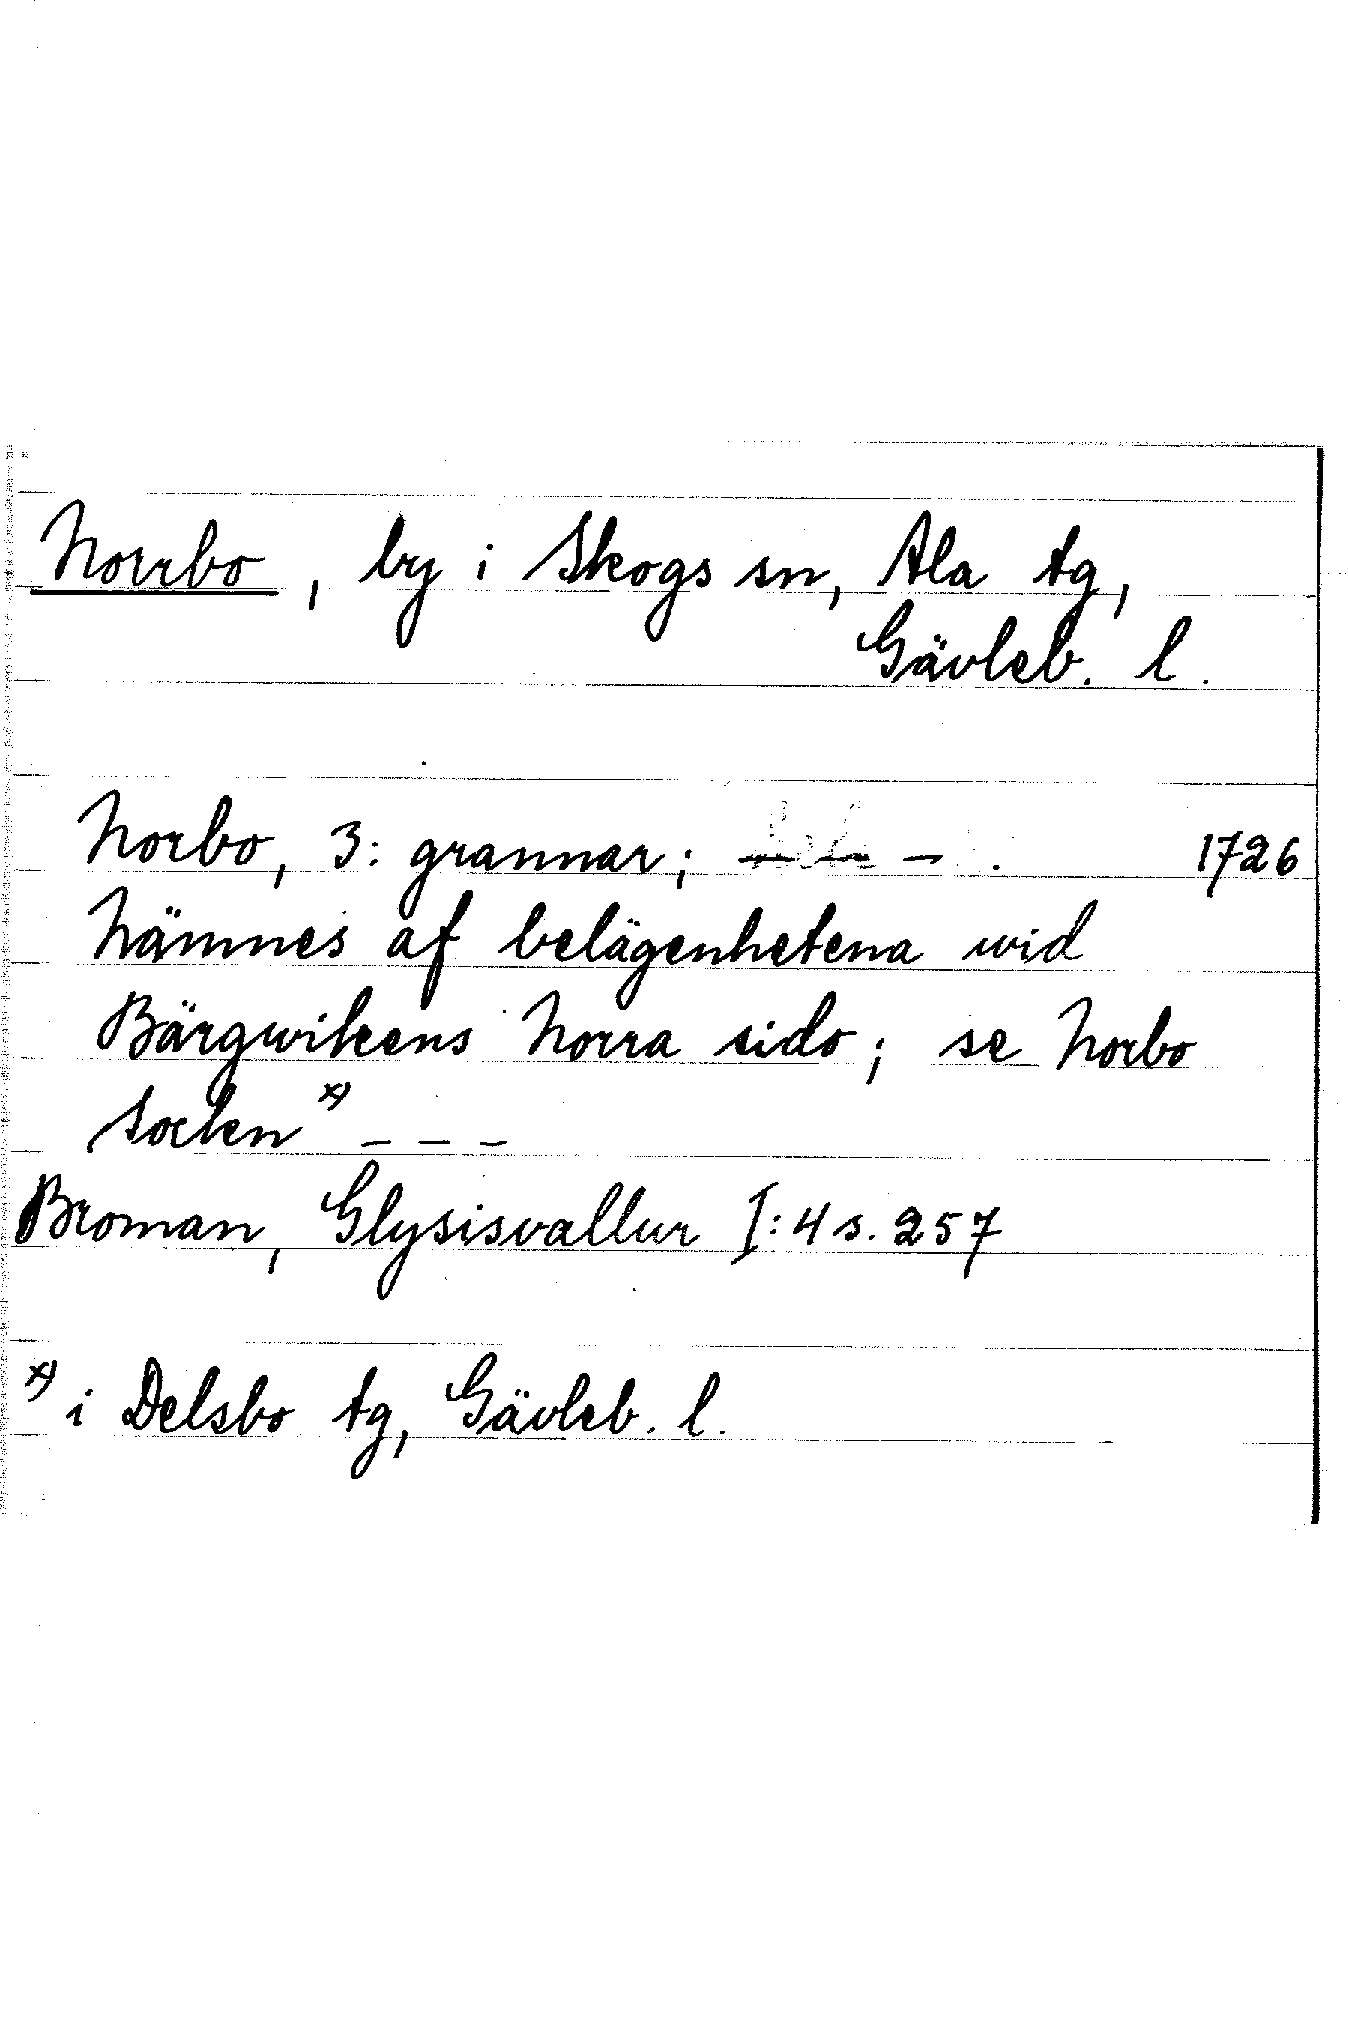 Norrbo, by i Skogs sn, Ala tg,
Gävleb. l.
Norbo, 3: grannar; – – – 1726
Nämnes af belägenhetena wid
Bärgwikens Norra sido; se Norbo
Socken x) – – –
Broman, Glysisvallur I:4 s. 257
x) i Delsbo tg, Gävleb. l.